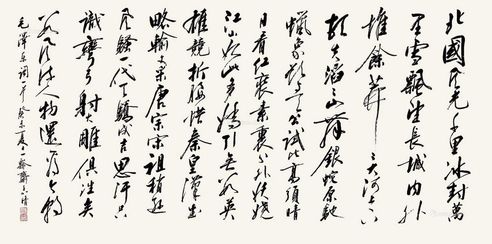 北國風光千里冰封萬
里雪飄望長城內外
惟餘莽莽大河上下
頓失滔滔山舞銀蛇原馳
蠟象欲與天公試比高須晴
日看紅裹素裹分外妖嬈
江山如此多嬌引無數英
雄競折腰惜秦皇漢武
略輸文采唐宗宋祖稍遜
風騷一代天驕成吉思汗只
識彎弓射大雕俱往矣
數風流人物還看今朝
毛澤東詞一首癸未夏